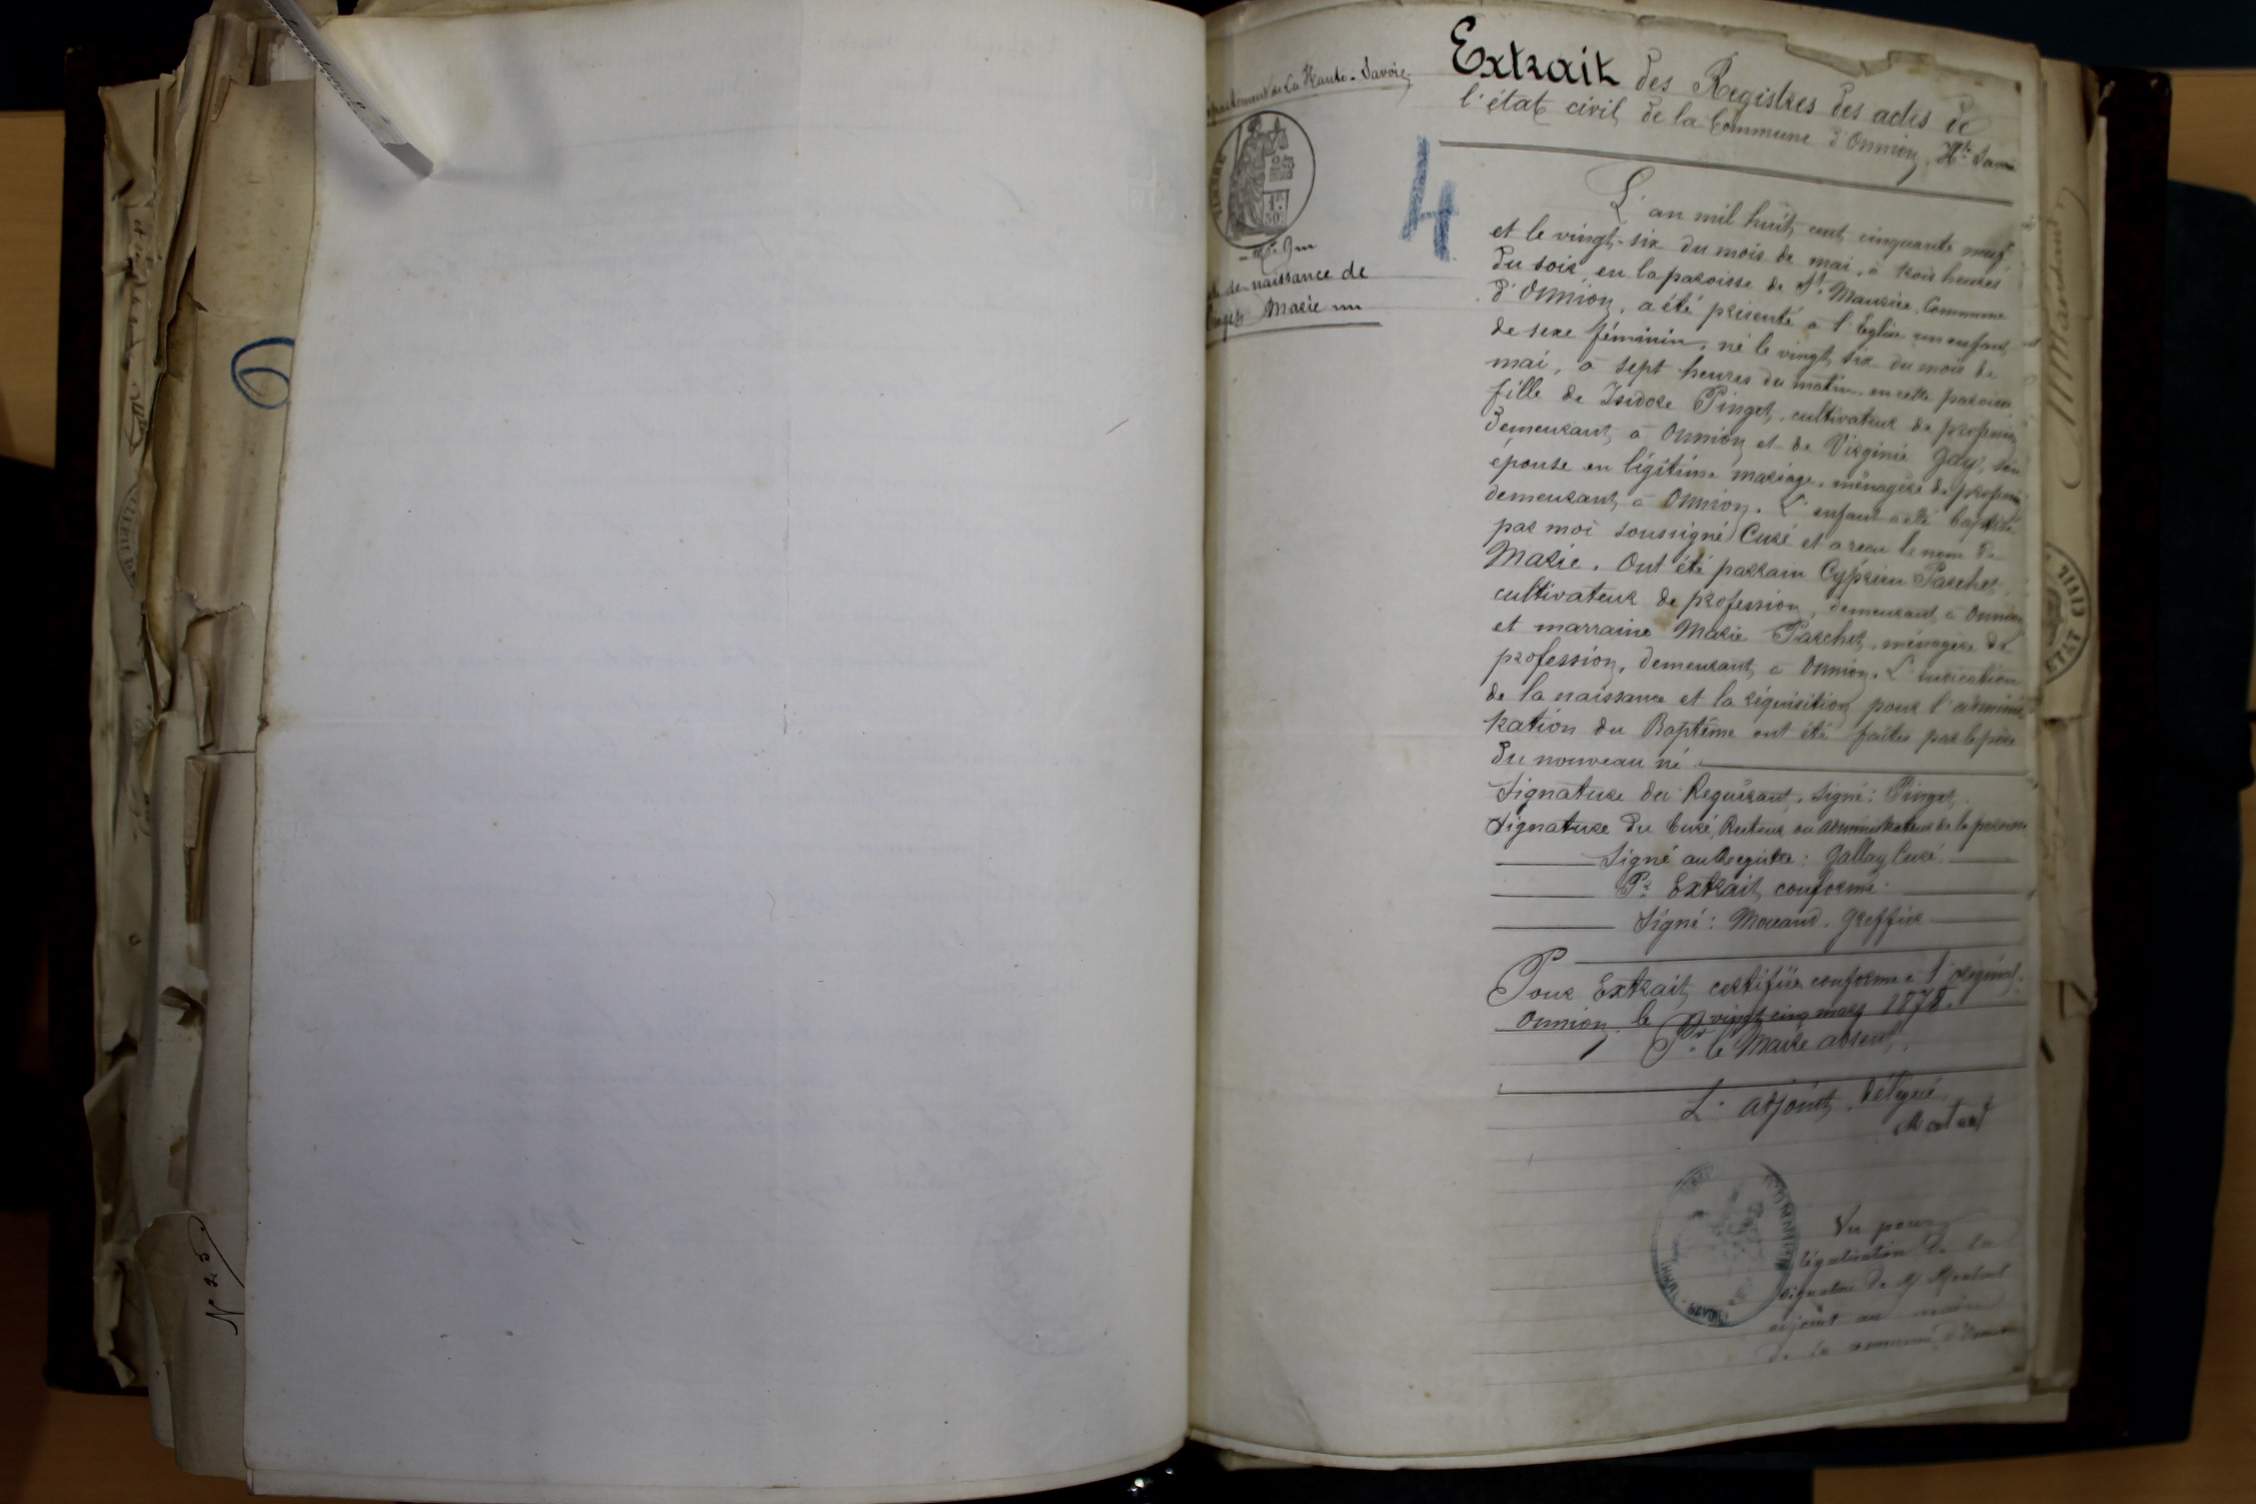 Département de la Haute-Savoie
Extrait des Registres des actes de
l'état civil de la Commune d'Onnion, Hte Savoie
4
de naissance de
Pinget Marie
L'an mil huit cent cinquante neuf
et le vingt-six du mois de mai, à trois heures
du soir, en la paroisse de St. Maurice Commune
d'Onnion, a été présenté à l'Eglise un enfant
de sexe féminin, né le vingt six du mois de
mai, à sept heures du matin en cette paroisse
fille de Isidore Pinget, cultivateur de profession
demeurant à Onnion et de Virginie Gay, son
épouse en légitime mariage, ménagère de profession
demeurant à Onnion. L'enfant a été baptisé
par moi soussigné Curé et a reçu le nom de
Marie. Ont été parrain Cyprien Parchet,
cultivateur de profession, demeurant à Onnion
et marraine Marie Parchet, ménagère de
profession, demeurant à Onnion. L'indication
de la naissance et la réquisition pour l'adminis
tration du Baptême ont été faites par le père
du nouveau né
Signature du Requérant, signé: Pinget
Signature du Curé, Recteur ou Administrateur de la paroisse
Signé au Registre: Gallay Curé
Pr Extrait conforme
Signé: Mouand, Greffier
Pour Extrait certifié conforme à l'original.
Onnion, le vingt cinq mars 1878.
Pr le Maire absent,
L'adjoint délégué
Vu pour
légalisation de la
signature de M
adjoint au maire
de la commune d'Onnion
N° 23